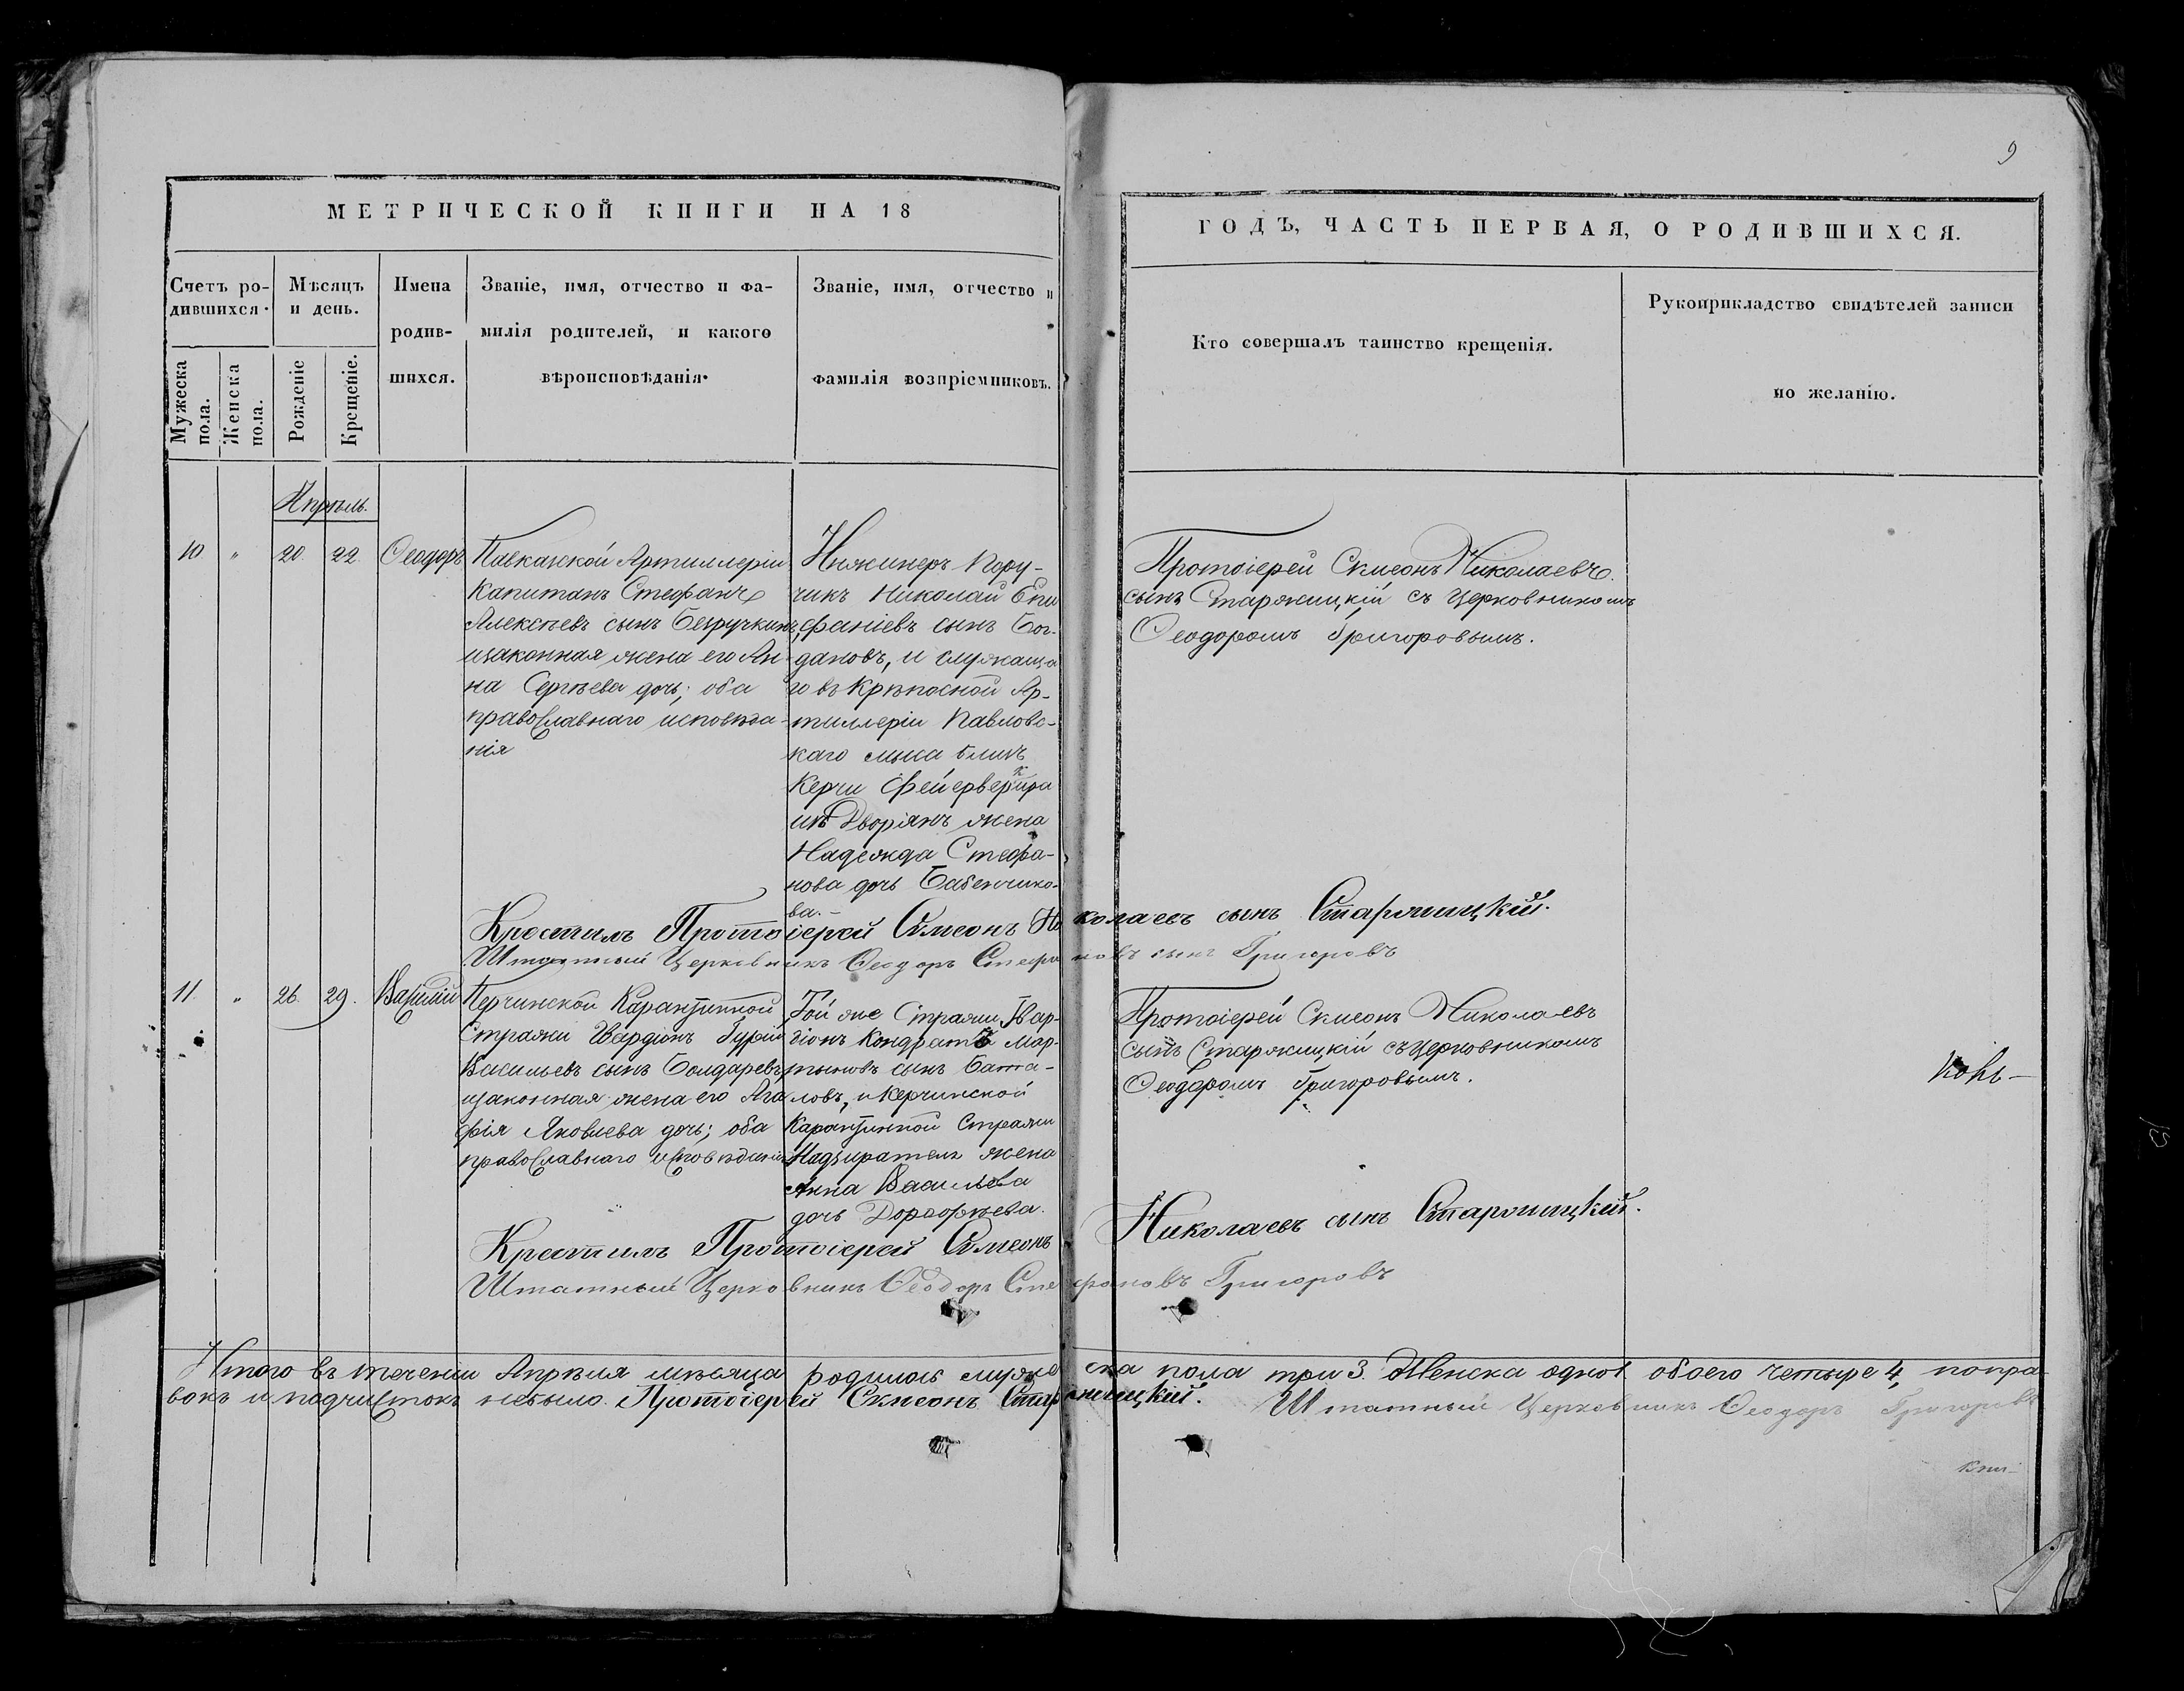 9
МЕТРИЧЕСКОЙ КНИГИ НА 18
ГОДЪ, ЧАСТЬ ПЕРВАЯ, О РОДИВШИХСЯ.
Счетъ ро-
дившихся.
Мужеска
пола.
Женска
пола.
Мѣсяцъ
и день.
Рожденіе
Крещеніе.
Имена
родив-
шихся.
Званіе, имя, отчество и фа-
милія родителей, и какого
вѣроисповѣданія.
Званіе, имя, отчество и
фамилія возпріемниковъ.
Кто совершалъ таинство крещенія.
Рукоприкладство свидѣтелей записи
по желанію.
Апрѣль.
10 " 20 22 Ѳеодоръ
Кавказкой Артиллеріи
Капитанъ Стефанъ
Алексѣевъ сынъ Безручкинъ,
изаконная жена его Ан-
на Сергѣева дочь; оба
православнаго исповѣда-
нія
Инжинеръ Пору-
чикъ Николай Епи
фаніевъ сынъ Бог-
дановъ, и служаща
го въ Крѣпосной Ар-
тиллеріи Павловс-
каго мыса близъ
Керчи Фейерверкира
изъ Дворянъ жена
Надежда Стефа-
нова дочь Бабенчико-
ва.-
Протоіерей Сѵмеонъ Николаевъ
сынъ Старжицкій съ Церковникомъ
Ѳеодоромъ Григоровымъ.
Крестилъ Протоіерей Сѵмеонъ Николаевъ сынъ Старжицкій.
Штатный Церковникъ Ѳеодоръ Стефановъ сынъ Григоровъ
11. " 26. 29. Василій
Керчинской Карантинной
Стражи Гвардіонъ Гурій
Васильевъ сынъ Болдаревъ,
изаконная жена его Ага
фія Яковлева дочь; оба
православнаго исповѣданія
Той же Стражи Гвар-
діонъ Кондратъ Мар-
тыновъ сынъ Бата-
ловъ, и Керчинской
Карантинной Стражи
Надзирателя жена
Анна Васильева
дочь Дорофѣева.
Протоіерей Сѵмеонъ Николаевъ
сынъ Старжицкій съ Церковникомъ
Ѳеодоромъ Григоровымъ.
Крестилъ Протоіерей Сѵмеонъ Николаевъ сынъ Старжицкій.
Штатный Церковникъ Ѳеодоръ Стефановъ Григоровъ
Итого въ теченіи Апрѣля мѣсяца родилось мужеска пола три 3. Женска одно 1 обоего четыре 4, попра-
вокъ и подчистокъ небыло. Протоіерей Сѵмеонъ Старжицкій. Штатный Церковникъ Ѳеодоръ Григоровъ